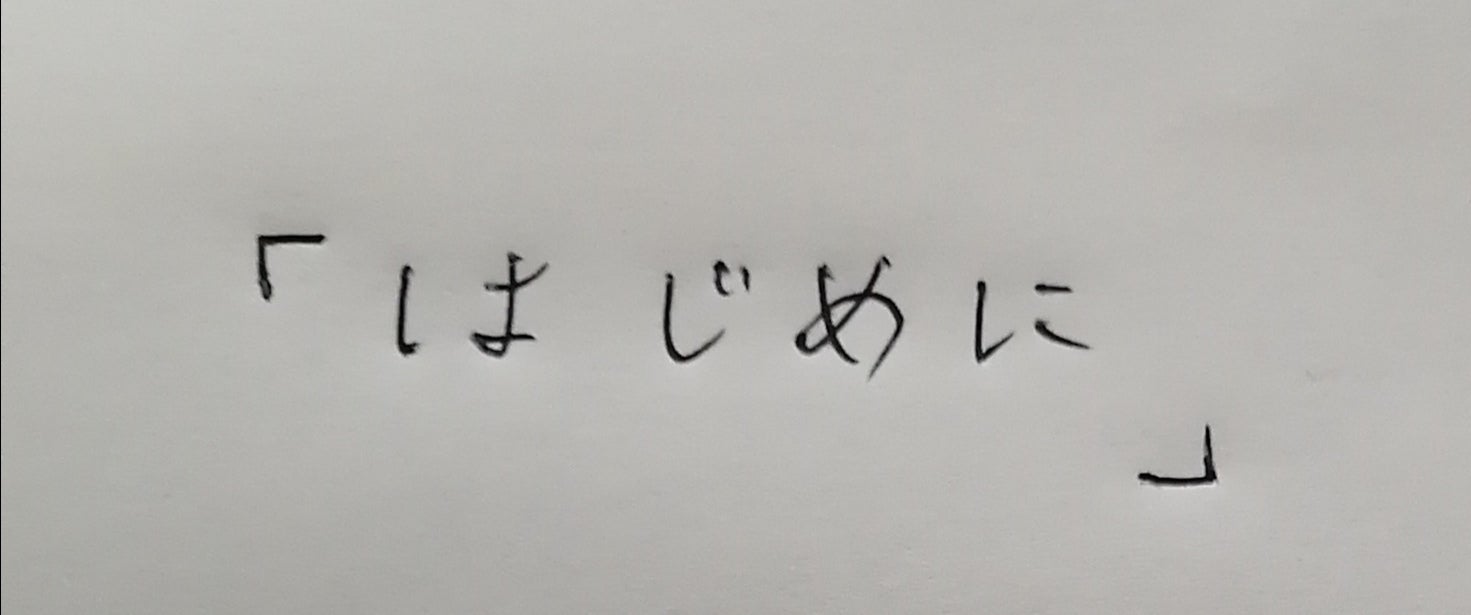 「はじめに」